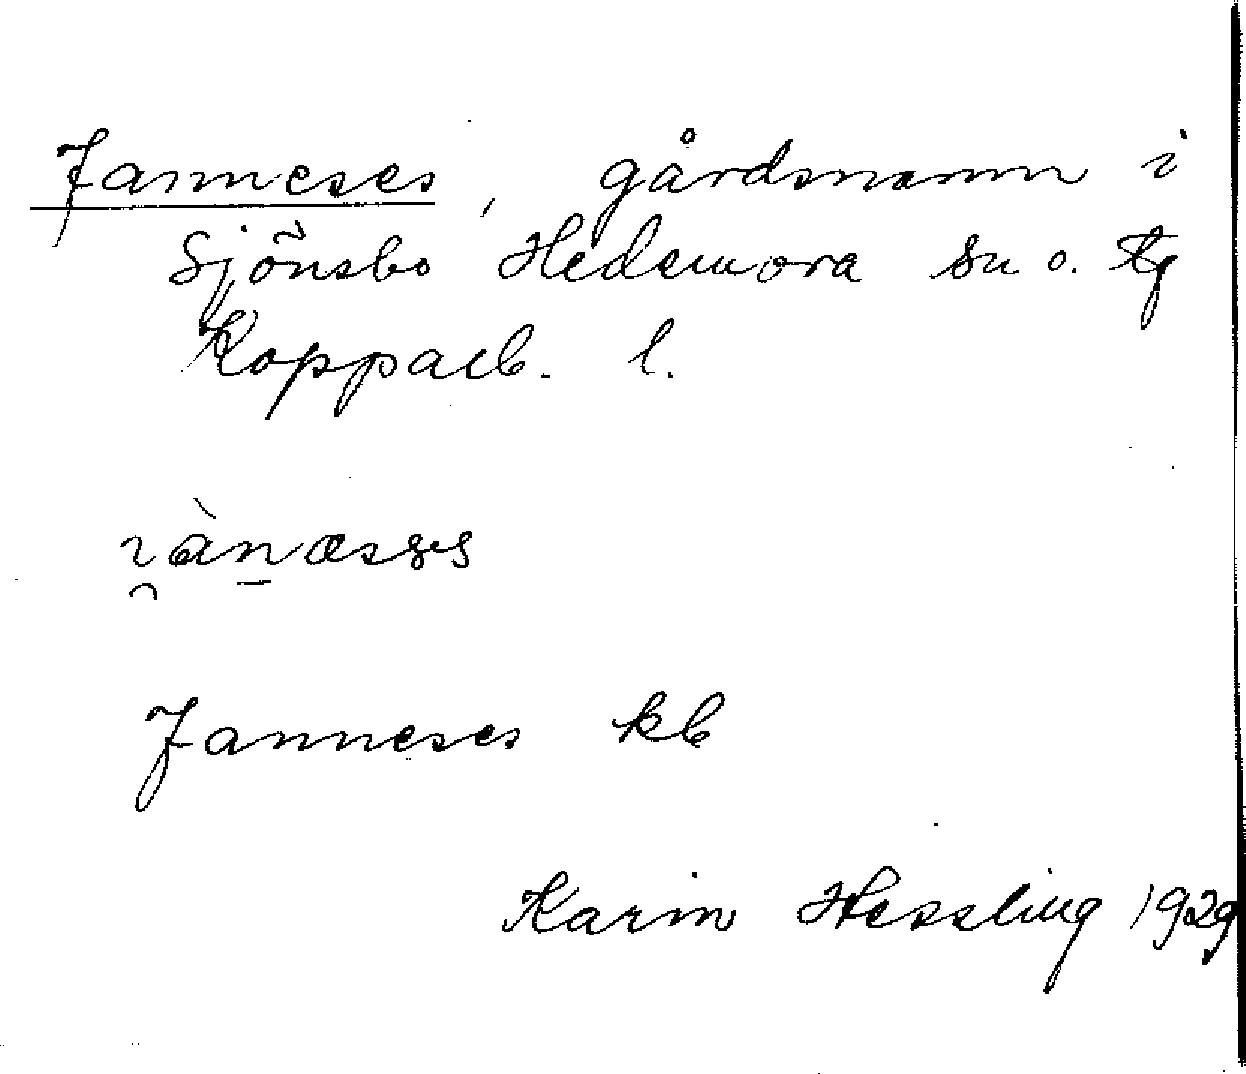 Janneses, gårdsnamn i
Sjönsbo Hedemora sn o. tg
Kopparb. l.
Janneses kb
Karin Hessling 1929